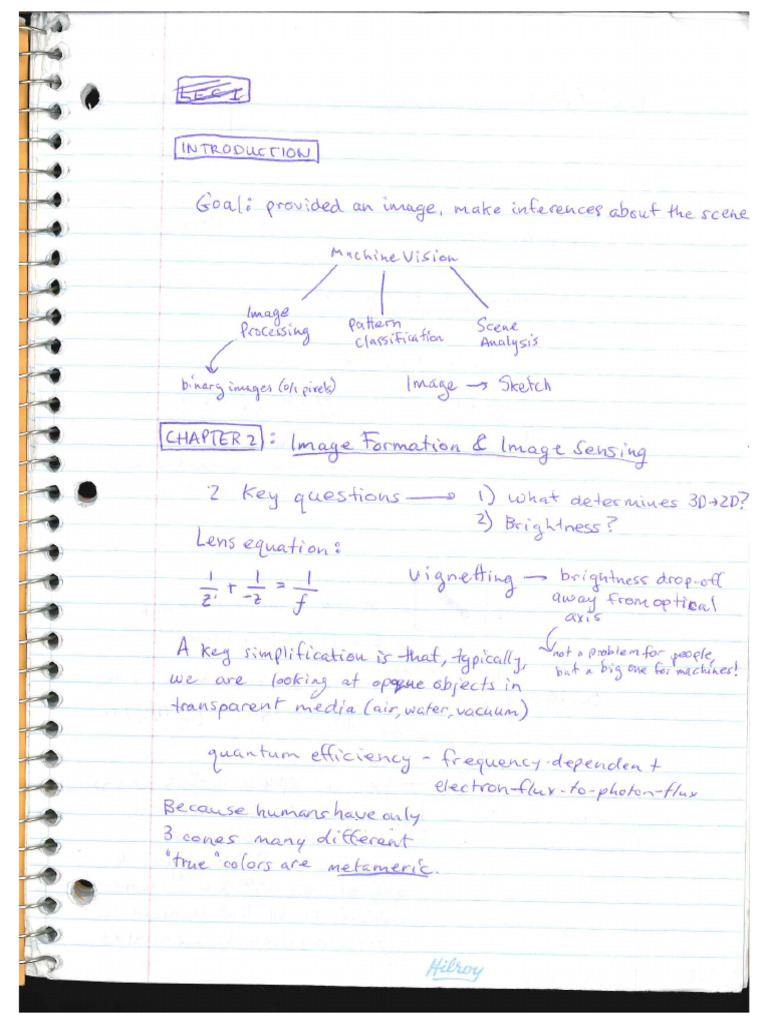 LEC 1
INTRODUCTION
Goal: provided an image, make inferences about the scene
Machine Vision
Image Processing
Pattern Classification
Scene Analysis
binary images (0/1 pixels)
Image → Sketch
CHAPTER 2: Image Formation & Image Sensing
2 key questions → 1) what determines 3D→2D?
2) Brightness?
Lens equation:
1/z' + 1/-z = 1/f
vignetting → brightness drop-off
away from optical
axis
not a problem for people,
but a big one for machines!
A key simplification is that, typically,
we are looking at opaque objects in
transparent media (air, water, vacuum)
quantum efficiency - frequency-dependent
electron-flux-to-photon-flux
Because humans have only
3 cones many different
"true" colors are metameric.
Hilroy